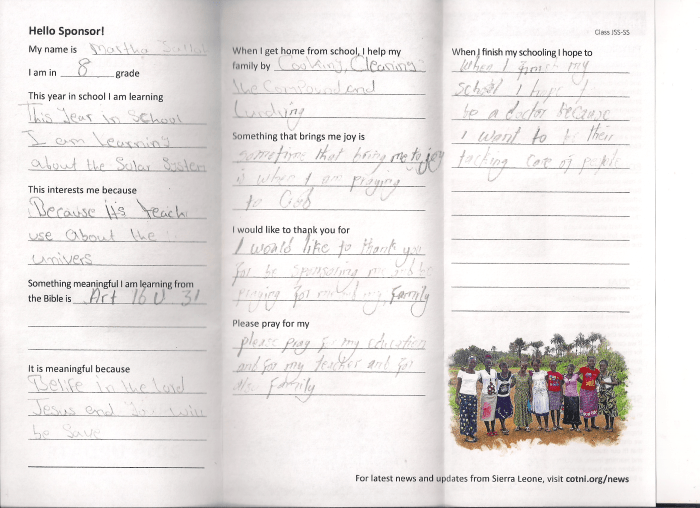 Hello Sponsor!
My name is Martha
I am in 8 grade
This year in school I am learning
This Year In School
I am Learning
about the Solar System
This interests me because
Because it's teach
use about the
univers
Something meaningful I am learning from
the Bible is Art 16 V 31
It is meaningful because
Belife in the lord
Jesus and You will
be Save
When I get home from school, I help my
family by Cooking, Cleaning
the Compound and
Something that brings me joy is
sometime that bring me to joy
is when I am praying
to God
I would like to thank you for
I would like to thank you
for be sponsoring me and be
praying for me and my Family
Please pray for my
please pray for my education
and for my teacher and for
also Family
Class JSS-SS
When I finish my schooling I hope to
When I finish my
school I hope I
be a doctor because
I want to be their
tacking care of people
For latest news and updates from Sierra Leone, visit cotni.org/news